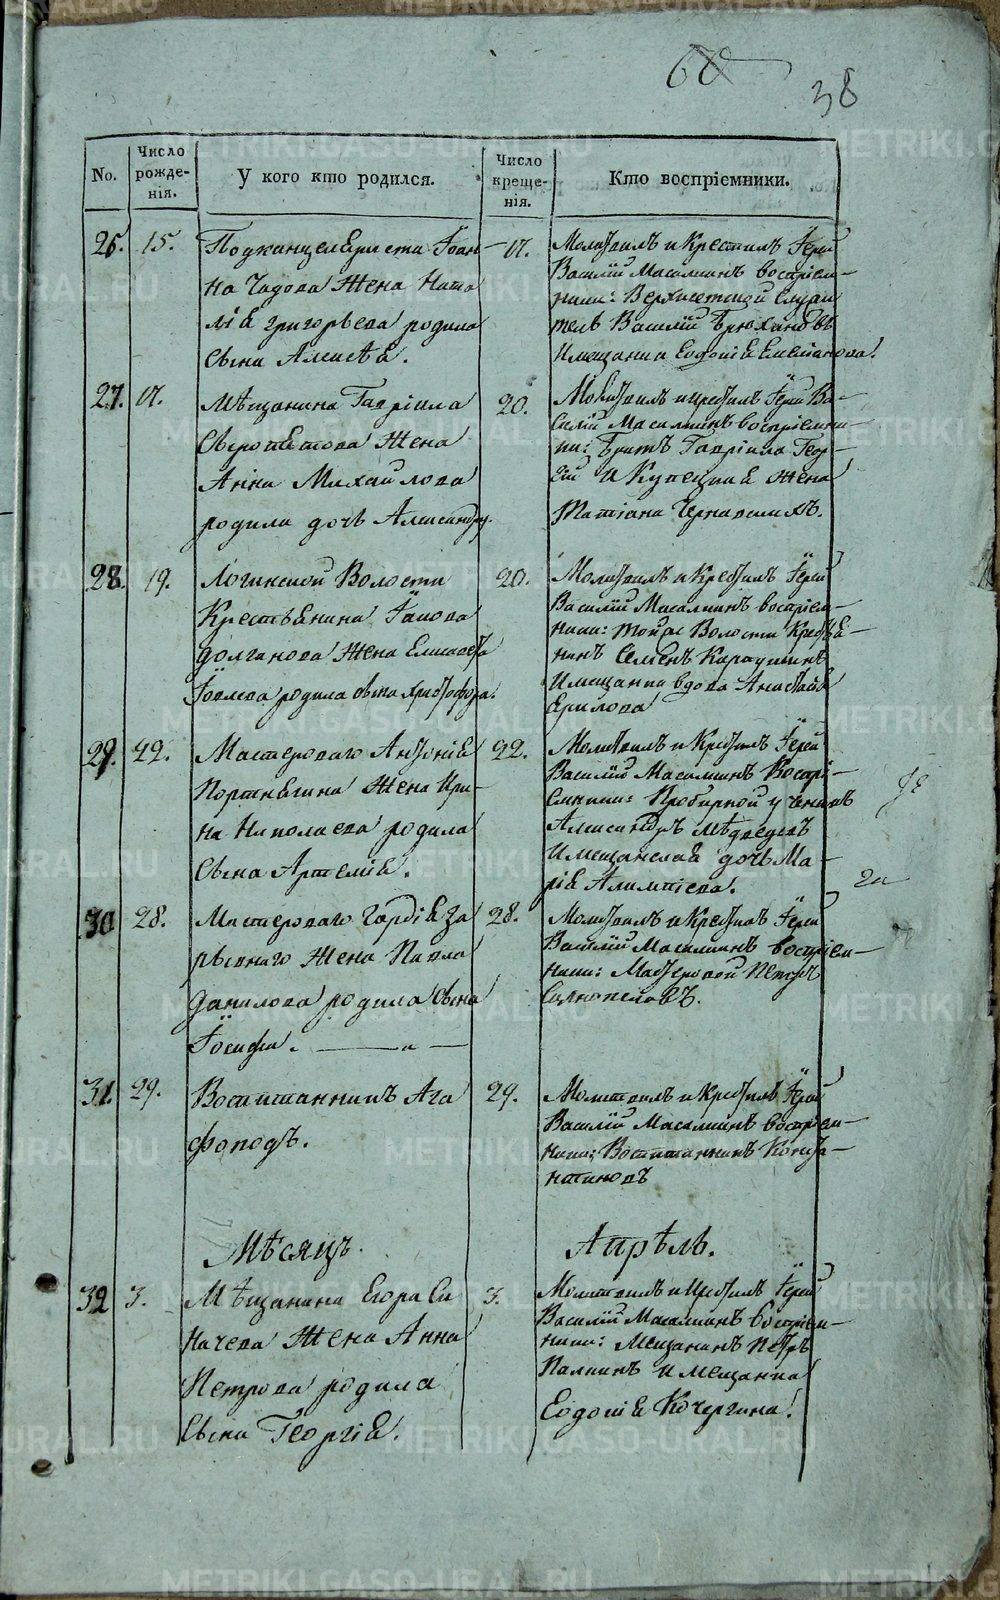 38
No.
Число рожде-нія.
У кого кто родился.
Число креще-нія.
Кто воспріемники.
26. 15. Подканцеляриста Іоан-
на Чадова Жена Ната
лія Григорьева родила
Сына Алексѣя.
17. Молитвилъ и Крестилъ Іерей
Василій Масалкинъ воспріем-
ники: Верхисетской
Василій Брюхановъ
и мещанка Евдокія Емельянова.
27. 17. Мѣщанина Гавріила
Жена
Анна Михайлова
родила дочь Александру.
20. Молитвилъ и крестилъ Іерей Ва-
силій Масалкинъ воспріемни-
ки: Братъ Гавріила Геор-
гій и Купецкая жена
Татіана
28. 19. Логинской Волости
Крестьянина Іакова
Долганова Жена Елисавета
Іовлева родила сына Христофора.
20. Молитвилъ и Крестилъ Іерей
Василій Масалкинъ воспріем-
ники: тойже Волости Крестья-
нинъ Семенъ
и мещанка вдова Анастасія
Ерилова
29. 22. Мастероваго Антонія
Портнягина Жена Ири-
на Николаева родила
Сына Артемія.
22. Молитвилъ и Крестилъ Іерей
Василій Масалкинъ Воспрі-
емники: Пробирной ученикъ
Александръ Мѣдведевъ
и мещанская дочь Ма-
рія Алимпіева.
30 28. Мастероваго Гордія За
рывнаго Жена Павла
Данилова родила Сына
Іосифа.
28. Молитвилъ и Крестилъ Іерей
Василій Масалкинъ воспріем-
ники: Мастеровой Петръ
31. 29. Воспитанникъ Ага
фоподъ.
29. Молитвилъ и Крестилъ Іерей
Василій Масалкинъ воспріем-
ники: Воспитанникъ Конста-
нтиновъ
Мѣсяцъ. Апрѣль.
32 3. Мѣщанина Егора Си
начева Жена Анна
Петрова родила
Сына Георгія.
3. Молитвилъ и Крестилъ Іерей
Василій Масалкинъ Воспріем-
ники: Мещанинъ Петръ
Палкинъ и мещанка
Евдокія Кочергина.
METRIKI.GASO-URAL.RU